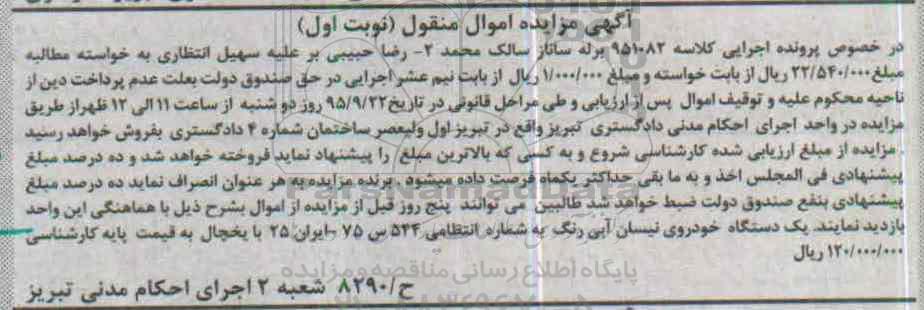 آگهی مزایده اموال منقول (نوبت اول)
در خصوص پرونده اجرایی کلاسه ۹۵۱۰۸۲ برله ساناز سالک محمد ۲- رضا حبیبی بر علیه سهیل انتظاری به خواسته مطالبه
مبلغ ۲۲/۵۴۰/۰۰۰ ریال از بابت خواسته و مبلغ ۱/۰۰۰/۰۰۰ ریال از بابت نیم عشر اجرایی در حق صندوق دولت بعلت عدم پرداخت دین از
ناحیه محکوم علیه و توقیف اموال پس از ارزیابی و طی مراحل قانونی در تاریخ ۹۵/۹/۲۲ روز دو شنبه از ساعت ۱۱ الی ۱۲ ظهر از طریق
مزایده در واحد اجرای احکام مدنی دادگستری تبریز واقع در تبریز اول ولیعصر ساختمان شماره ۴ دادگستری بفروش خواهد رسید
. مزایده از مبلغ ارزیابی شده کارشناسی شروع و به کسی که بالاترین مبلغ را پیشنهاد نماید فروخته خواهد شد و ده درصد مبلغ
پیشنهادی فی المجلس اخذ و به ما بقی حداکثر یکماه فرصت داده میشود . برنده مزایده به هر عنوان انصراف نماید ده درصد مبلغ
پیشنهادی بنفع صندوق دولت ضبط خواهد شد طالبین می توانند پنج روز قبل از مزایده از اموال بشرح ذیل با هماهنگی این واحد
بازدید نمایند. یک دستگاه خودروی نیسان آبی رنگ به شماره انتظامی ۵۴۴ س ۷۵ -ایران ۲۵ با یخچال به قیمت پایه کارشناسی
۱۲۰/۰۰۰/۰۰۰ ریال
پایگاه اطلاع رسانی مناقصه و مزایده
ح/۸۲۹۰ شعبه ۲ اجرای احکام مدنی تبریز